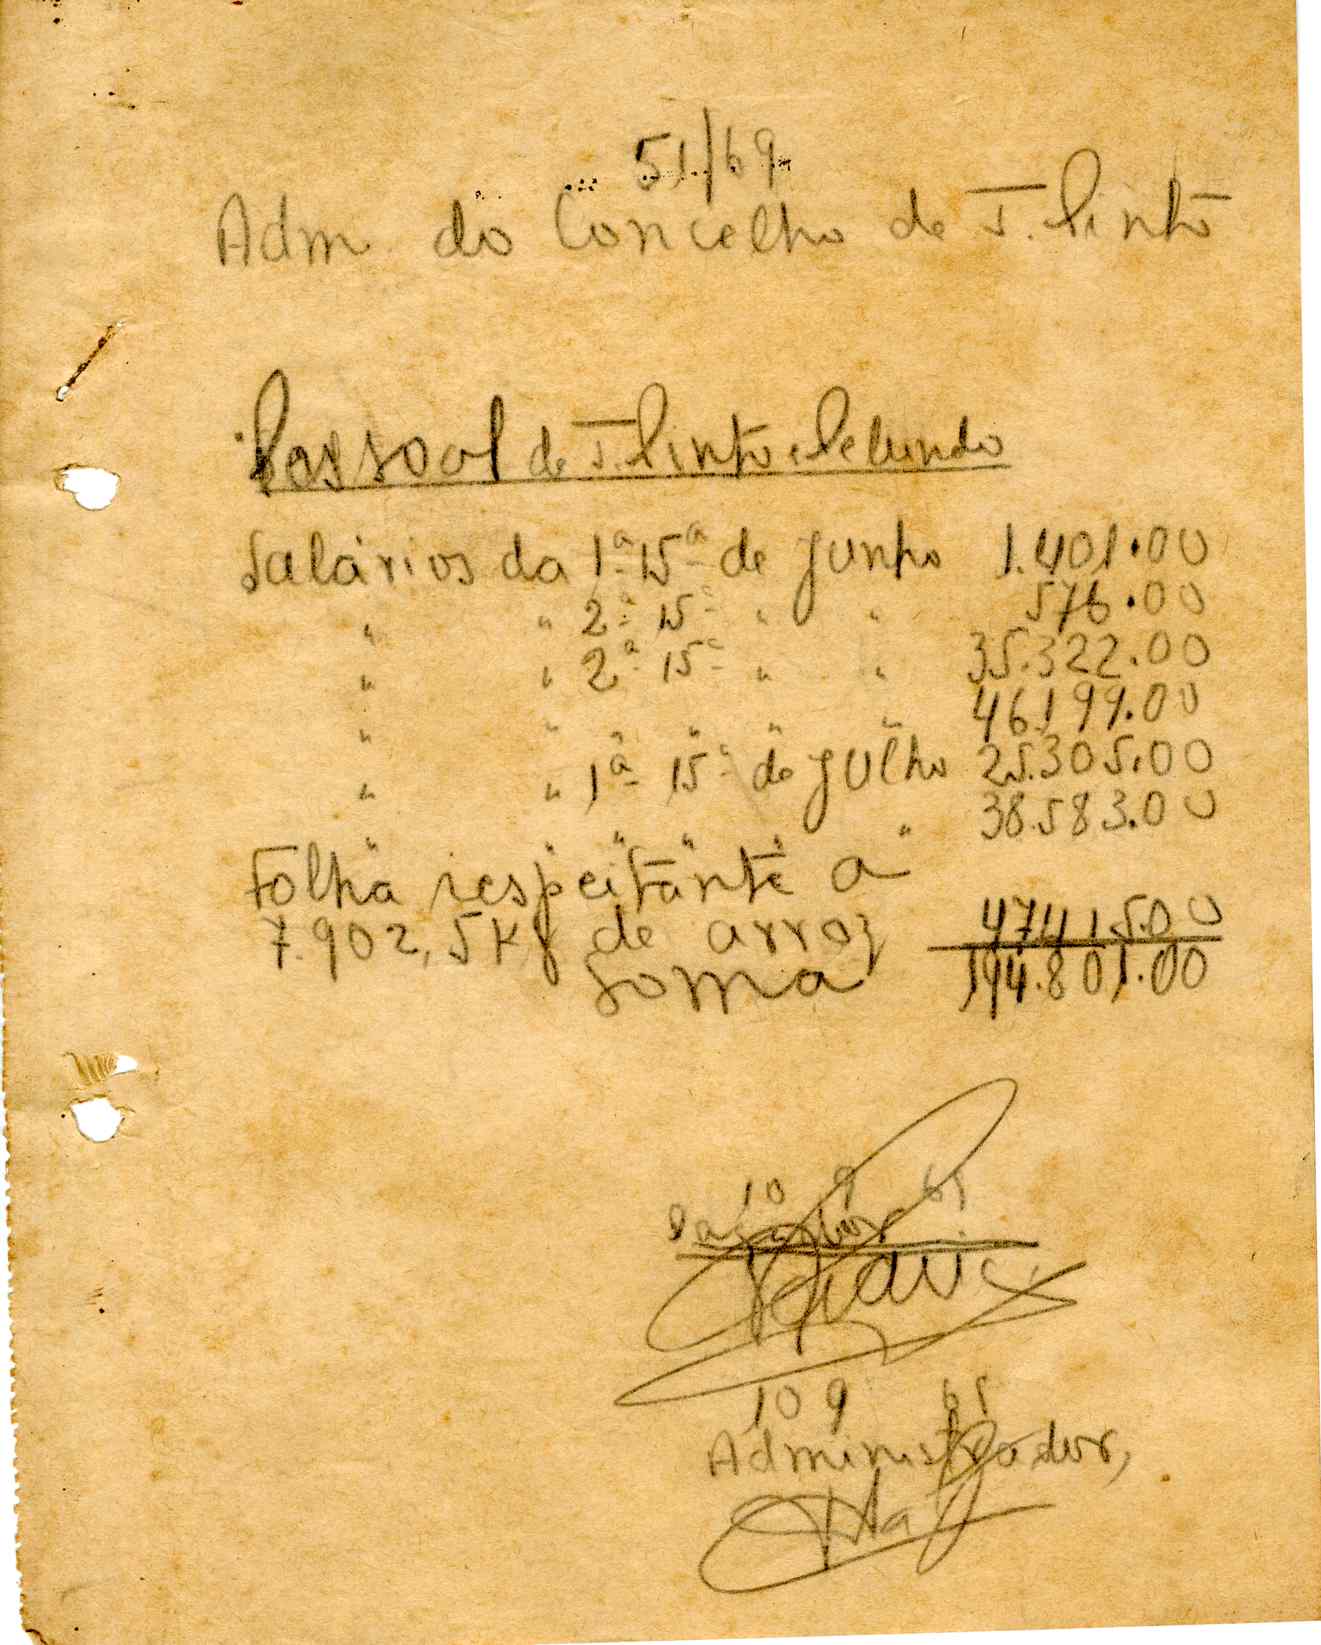 51/69
Adm do Concelho de T. Pinto
Pessoal de T. Pinto e Pelundo
Salários da 1ª 15ª de Junho 1.401.00
" " 2ª 15ª " " 576.00
" " 2ª 15ª " " 35.322.00
" " " " " " 46.199.00
" " 1ª 15ª de Julho 25.305.00
" " " " " " 38.583.00
Folha respeitante a
7.902,5Kg de arroz 47.415.00
Soma 194.801.00
10 9 65
Pagador
10 9 65
Administrador,